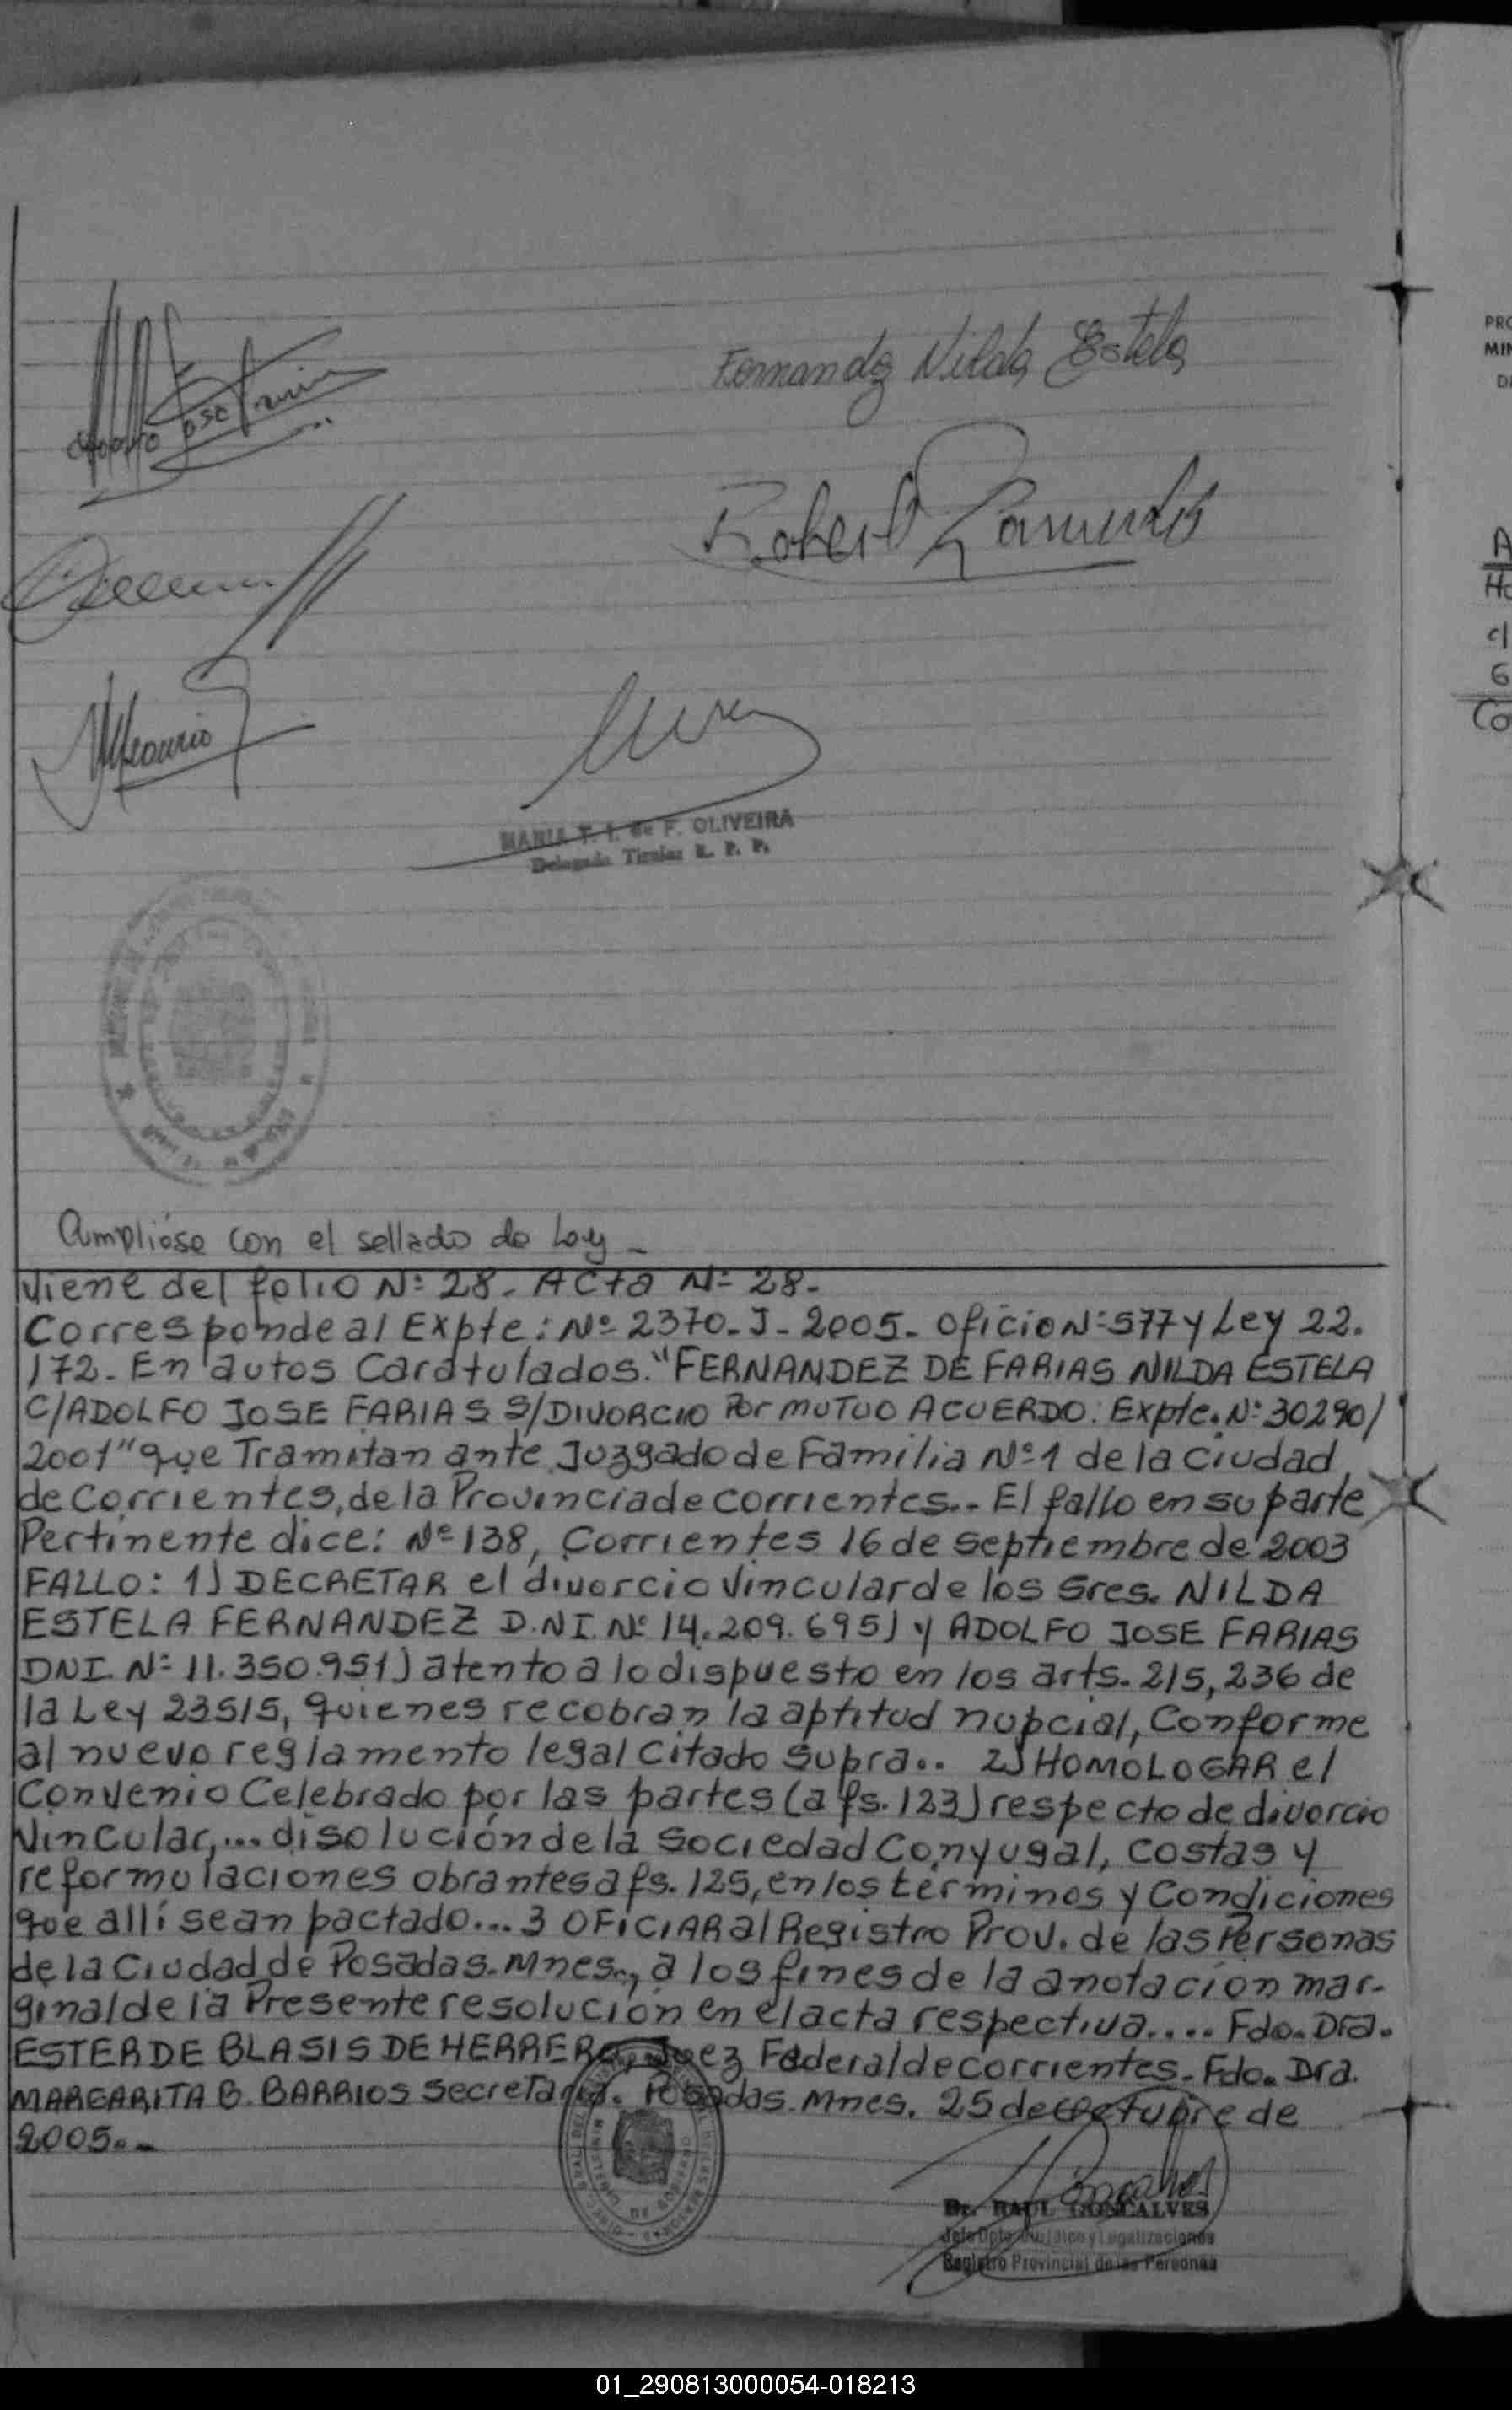 Adolfo Jose Farias
Fernandez Nilda Estela
Robert
MARIA T. I. de F. OLIVEIRA
Delegada Titular R. P. P.
Cumplióse con el sellado de Ley -
Viene del folio Nº 28. Acta Nº 28.
Corresponde al Expte: Nº 2370-J-2005. Oficio Nº 577 y Ley 22.
172. En autos Caratulados. "FERNANDEZ DE FARIAS NILDA ESTELA
C/ADOLFO JOSE FARIAS S/DIVORCIO Por MUTUO ACUERDO. Expte. Nº 30290/
2001" que Tramitan ante Juzgado de Familia Nº 1 de la Ciudad
de Corrientes, de la Provincia de Corrientes.. El fallo en su parte
Pertinente dice: Nº 138, Corrientes 16 de septiembre de 2003
FALLO: 1) DECRETAR el divorcio Vincular de los Sres. NILDA
ESTELA FERNANDEZ D.N.I. Nº 14.209.695) y ADOLFO JOSE FARIAS
DNI. Nº 11.350.951) atento a lo dispuesto en los arts. 215, 236 de
la Ley 23515, quienes recobran la aptitud nupcial, Conforme
al nuevo reglamento legal Citado Supra.. 2) HOMOLOGAR el
Convenio Celebrado por las partes (a fs. 123) respecto de divorcio
Vincular,... disolución de la Sociedad Conyugal, Costas y
reformulaciones obrantes a fs. 125, en los términos y Condiciones
que allí sean pactado... 3 OFICIAR al Registro Prov. de las Personas
de la Ciudad de Posadas. Mnes., a los fines de la anotación mar-
ginal de la Presente resolución en el acta respectiva.... Fdo. Dra.
ESTER DE BLASIS DE HERRERA Juez Federal de corrientes. Fdo. Dra.
MARGARITA B. BARRIOS Secretaria. Posadas. Mnes. 25 de octubre de
2005.-
Dr. RAUL GONCALVES
Jefe Dpto. Jurídico y Legalizaciones
Registro Provincial de las Personas
PRO
MIN
DI
A
Ho
c/
6
Co
01_290813000054-018213